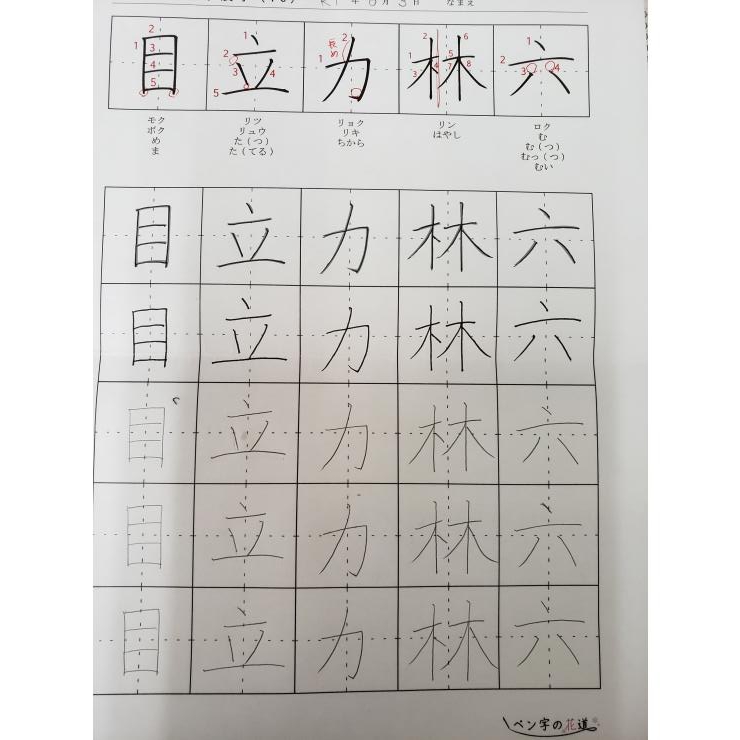 R1年6月3日 なまえ
目 立 力 林 六
長め
モク リツ リョク リン ロク
ボク リュウ リキ はやし む
め た（つ） ちから む（つ）
ま た（てる） むっ（つ）
むい
目 立 力 林 六
目 立 力 林 六
目 立 力 林 六
目 立 力 林 六
目 立 力 林 六
ペン字の花道